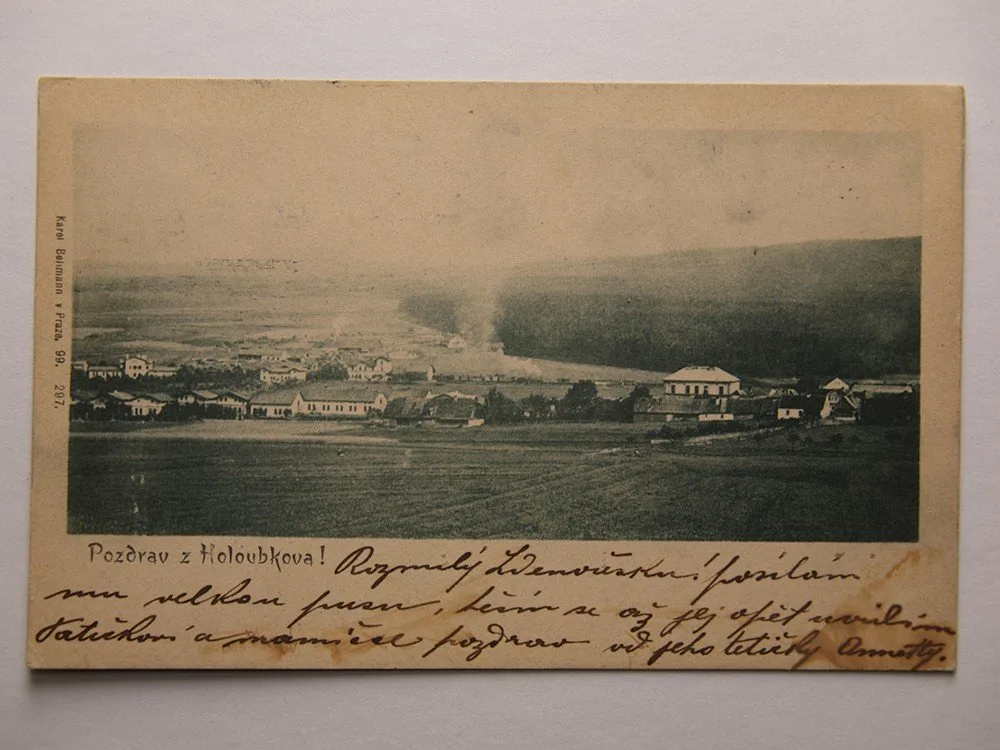 Karel Bellmann v Praze. 99. 297.
Pozdrav z Holoubkova!
Rozmilý Zdenoušku! posílám
mu velkou pusu, těším se až jej opět uvidím
Tatíčkovi a mamičce pozdrav od jeho tetičky Annetty.